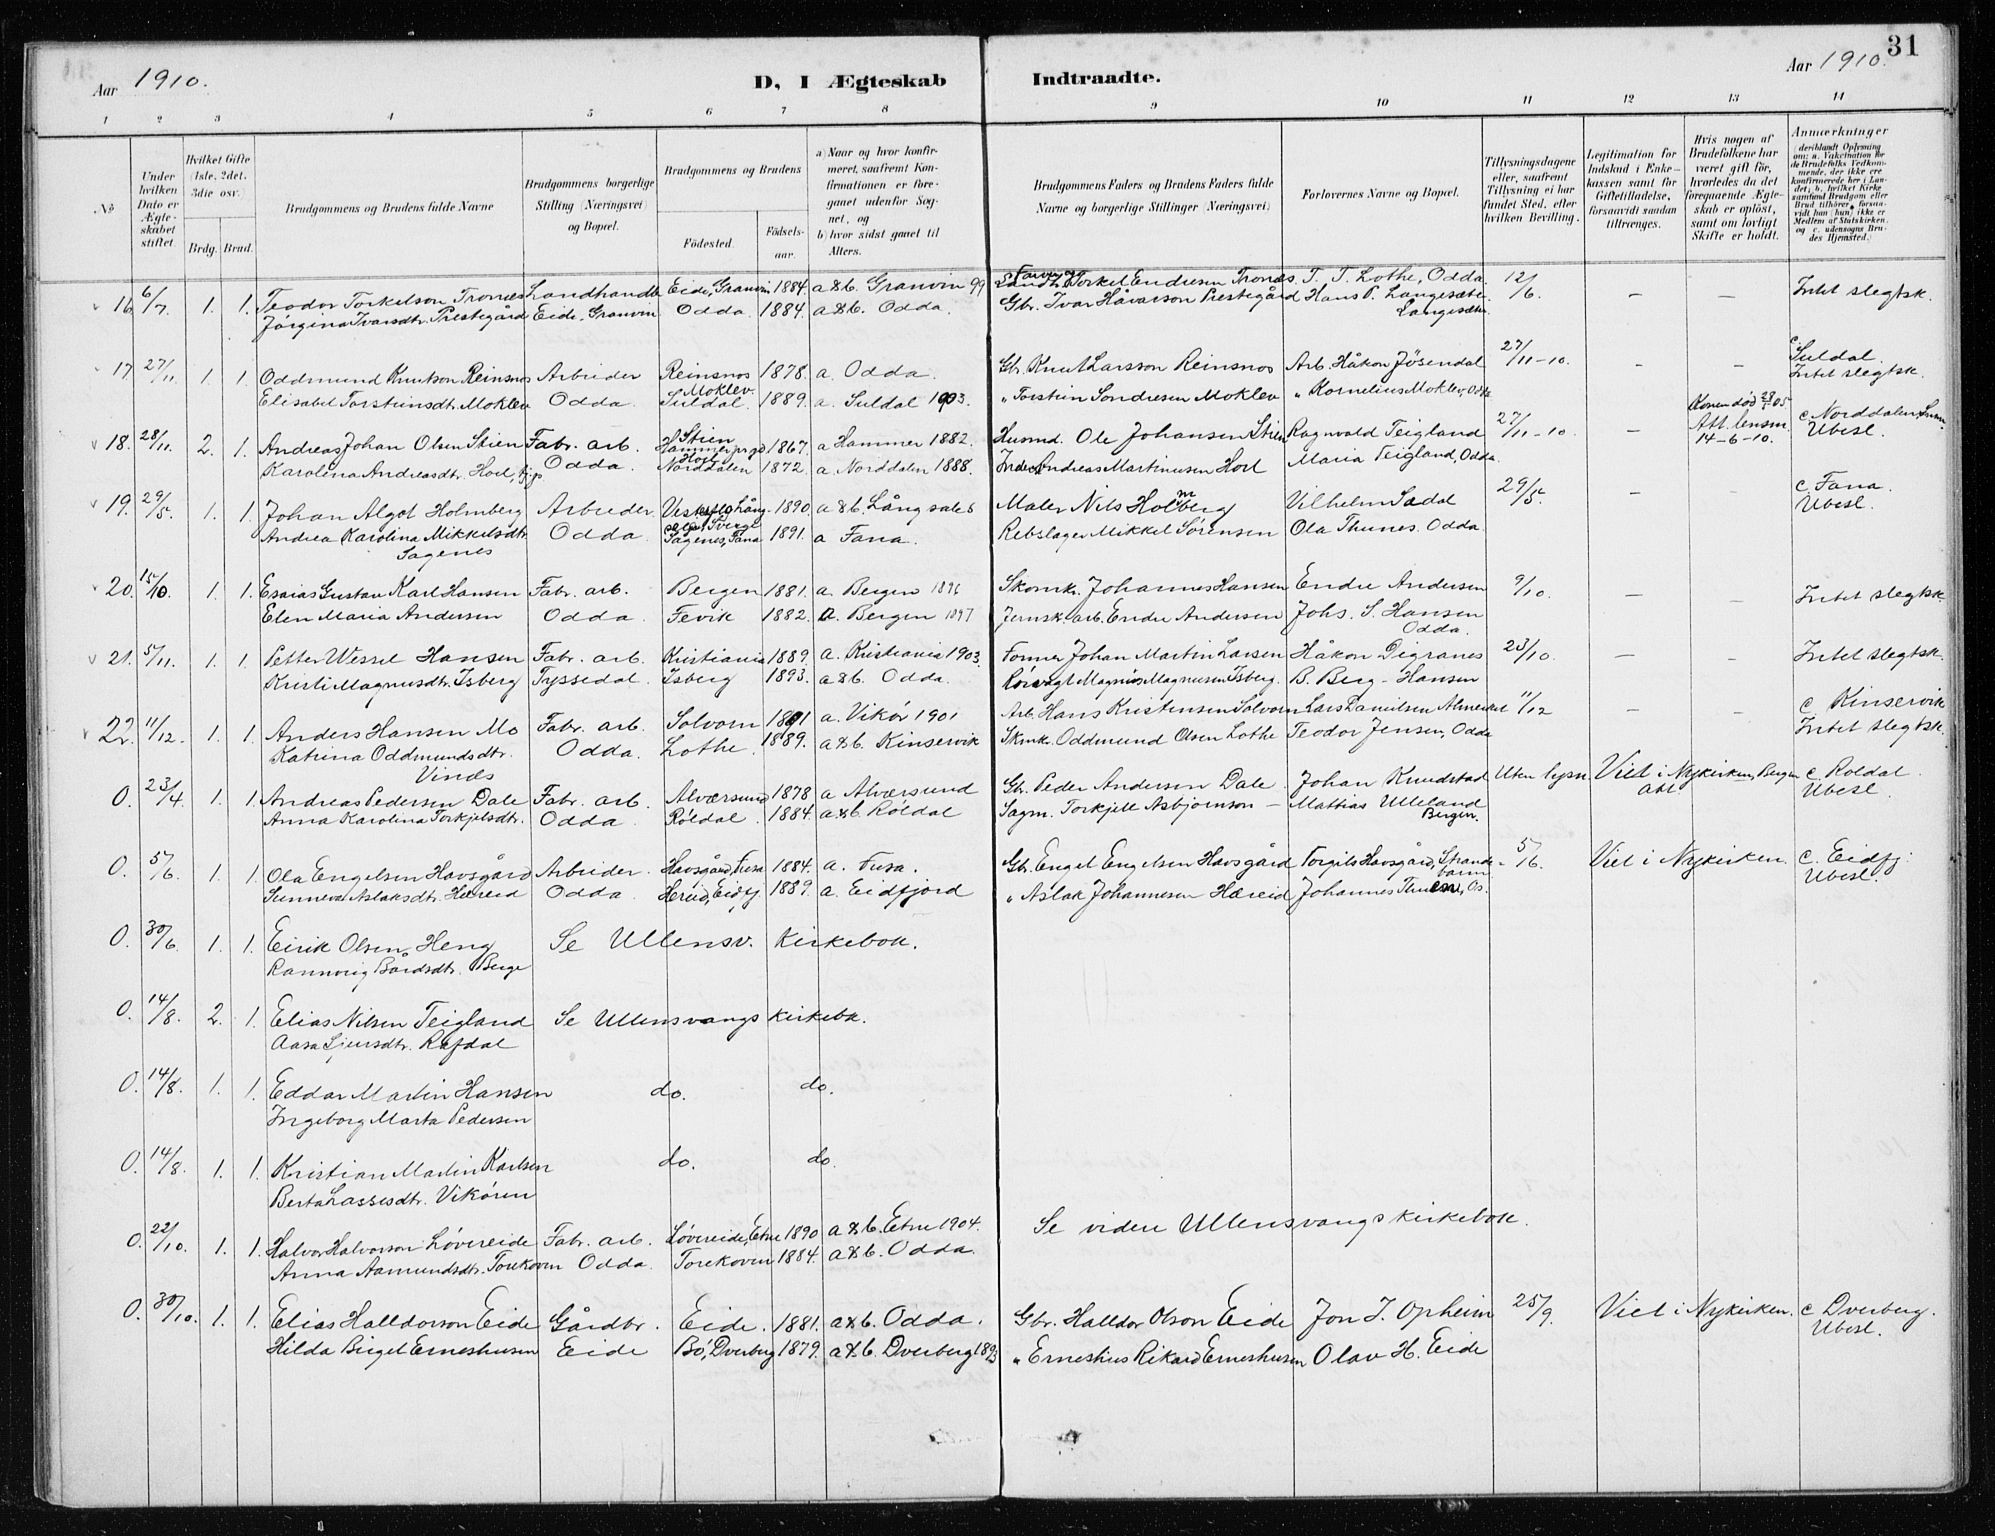 31
Aar 1910.
D, I Ægteskab Indtraadte.
Aar 1910.
1 2 3 4 5 6 7 8 9 10 11 12 13 14
No
Under hvilken Dato er Ægteskabet stiftet.
Hvilket Gifte (1ste, 2det, 3die osv.)
Brdg. Brud.
Brudgommens og Brudens fulde Navne
Brudgommens borgerlige Stilling (Næringsvei) og Bopæl.
Brudgommens og Brudens
Födested. Födsels-aar.
a) Naar og hvor konfirmeret, saafremt Konfirmationen er foregaaet udenfor Sognet, og
b) hvor sidst gaaet til Alters.
Brudgommens Faders og Brudens Faders fulde Navne og borgerlige Stillinger (Næringsvei)
Forlovernes Navne og Bopæl.
Tillysningsdagene eller, saafremt Tillysning ei har fundet Sted, efter hvilken Bevilling.
Legitimation for Indskud i Enkekassen samt for Giftetilladelse, forsaavidt saadan tiltrænges.
Hvis nogen af Brudefolkene har været gift før, hvorledes da det foregaaende Ægteskab er opløst, samt om lovligt Skifte er holdt.
Anmærkninger
(deriblandt Oplysning om: a. Vakcination for de Brudefolks Vedkommende, der ikke ere konfirmerede her i Landet; b. hvilket Kirkesamfund Brudgom eller Brud tilhører, forsaavidt han (hun) ikke er Medlem af Statskirken, og c. udensogns Brudes Hjemsted.)
16. 6/7. 1. 1. Teodor Torkelson Tronæs Landhandl. Eide, Granvin 1884. a&b. Granvin 99 Landh. Torkel Endresen Tronæs. T. T. Lothe, Odda. 12/6. — — Intet slegtsk.
Jørgina Ivarsdtr. Prestegård Eide, Granvin Odda. 1884. a&b. Odda. Gbr. Ivar Håvarson Prestegård Hans P. Langesæter Langesæter.
17. 27/11. 1. 1. Oddmund Knutson Reinsnos Arbeider Reinsnos 1878. a. Odda. Gbr. Knut Larsson Reinsnos Arb. Håkon Jøsendal 27/11-10. — — c Suldal. Intet slegtsk.
Elisabet Torsteinsdtr. Moklev Odda. Moklev Suldal. 1889. a. Suldal 1903. „ Torstin Sondresen Moklev „ Kornelius Moklev, Odda
18. 28/11. 2. 1. Andreas Johan Olsen Stien Fabr. arb. Stien Hammer prgd 1867. a Hammer 1882. Husmd. Ole Johansen Stien Ragnvald Teigland 27/11-10. — Konen död 28/5 05 Att. lensm. 14-6-10. c Norddalen Ubesl.
Karolina Andreasdtr. Hoel, Odda. Hoel Norddalen 1872. a Norddalen 1888. Inder. Andreas Martinusen Hoel Maria Teigland, Odda.
19. 29/5. 1. 1. Johan Algot Holmberg Arbeider 1890. a&b. Långsale b Maler Nils Holmberg Vilhelm Sædal 29/5. — — c Fana. Ubesl.
Andrea Karolina Mikkelsdtr. Sagenes Odda. Sagenes, Fana 1891. a Fana. Rebslager Mikkel Sørensen Ola Thunes. Odda.
20. 15/10. 1. 1. Esaias Gustav Karl Hansen Fabr. arb. Bergen 1881. a. Bergen 1896 Skomk. Johannes Hansen Endre Andersen 9/10. — — Intet slegtsk.
Elen Maria Andersen Odda. Fevik 1882. a. Bergen 1897 Jernsk. arb. Endre Andersen Johs. S. Hansen Odda.
21. 5/11. 1. 1. Petter Wessel Hansen Fabr. arb. Kristiania 1889. a. Kristiania 1903. Former Johan Martin Larsen Håkon Digranes 23/10. — — Intet slegtsk.
Kristi Magnusdtr. Isberg Tyssedal. Isberg 1893. a&b. Odda. Rörvogt Magnus Magnusen Isberg. B. Berg-Hansen
22. 11/12. 1. 1. Anders Hansen Mo Fabr. arb. Solvorn 1881 a. Vikör 1901 Arb. Hans Kristensen Solvorn Lars Danielsen Almerket 11/12 — — c Kinservik Intet slegtsk.
Katrina Oddmundsdtr. Vinæs Odda. Lothe. 1889. a&b. Kinservik Skmk. Oddmund Olsen Lothe Teodor Jensen, Odda
0. 23/4. 1. 1. Andreas Pedersen Dale Fabr. arb. Alværsund 1878 a Alværsund Gb. Peder Anderson Dale. Johan Knudstad Uten lysn. Viet i Nykirken, Bergen att c Röldal. Ubesl.
Anna Karolina Torkjelsdtr. Odda. Röldal. 1884. a&b Röldal Sagm. Torkjell Asbjornson — Mathias Ulleland Bergen.
0. 5/6. 1. 1. Ola Engelsen Havsgård Arbeider Havsgård, Fusa 1884. a. Fusa. Gb. Engel Engelsen Havsgård Torgils Havsgård, Strandebarm 5/6. Viet i Nykirken. c. Eidfj. Ubesl.
Sunneva Aslaksdtr. Hæreid Odda. Hereid, Eidfj. 1889. a. Eidfjord „ Aslak Johannesen Hæreid Johannes Tunesen, Os.
0. 30/6. 1. 1. Eirik Olsen Heng Se Ullensv. Kirkebok.
Rannveig Bårdsdtr. Berge
0. 14/8. 2. 1. Elias Nilsen Teigland Se Ullensvangs kirkebok.
Aasa Sjursdtr. Rafdal
0. 14/8. 1. 1. Eddar Martin Hansen do. do.
Ingeborg Marta Pedersen
0. 14/8. 1. 1. Kristian Martin Karlsen do. do.
Berta Lassesdtr. Vikören
0. 22/10. 1. 1. Halvor Halvorson Løvereide Fabr. arb. Løvereide, Etne 1890 a&b. Etne 1904. Se videre Ullensvangs kirkebok.
Anna Aamundsdtr. Torekoven Odda. Torekoven 1884. a&b. Odda.
0. 30/10. 1. 1. Elias Halldorson Eide Gårdbr. Eide. 1881. a&b. Odda. Gbr. Halldor Olson Eide Jon J. Opheim 25/9. Viet i Nykirken. c Dverberg. Ubesl.
Hilda Birgit Erneshusen Eide Bö, Dverberg 1879. a&b. Dverberg 1893 „ Ernestius Rikard Erneshusen Olav H. Eide